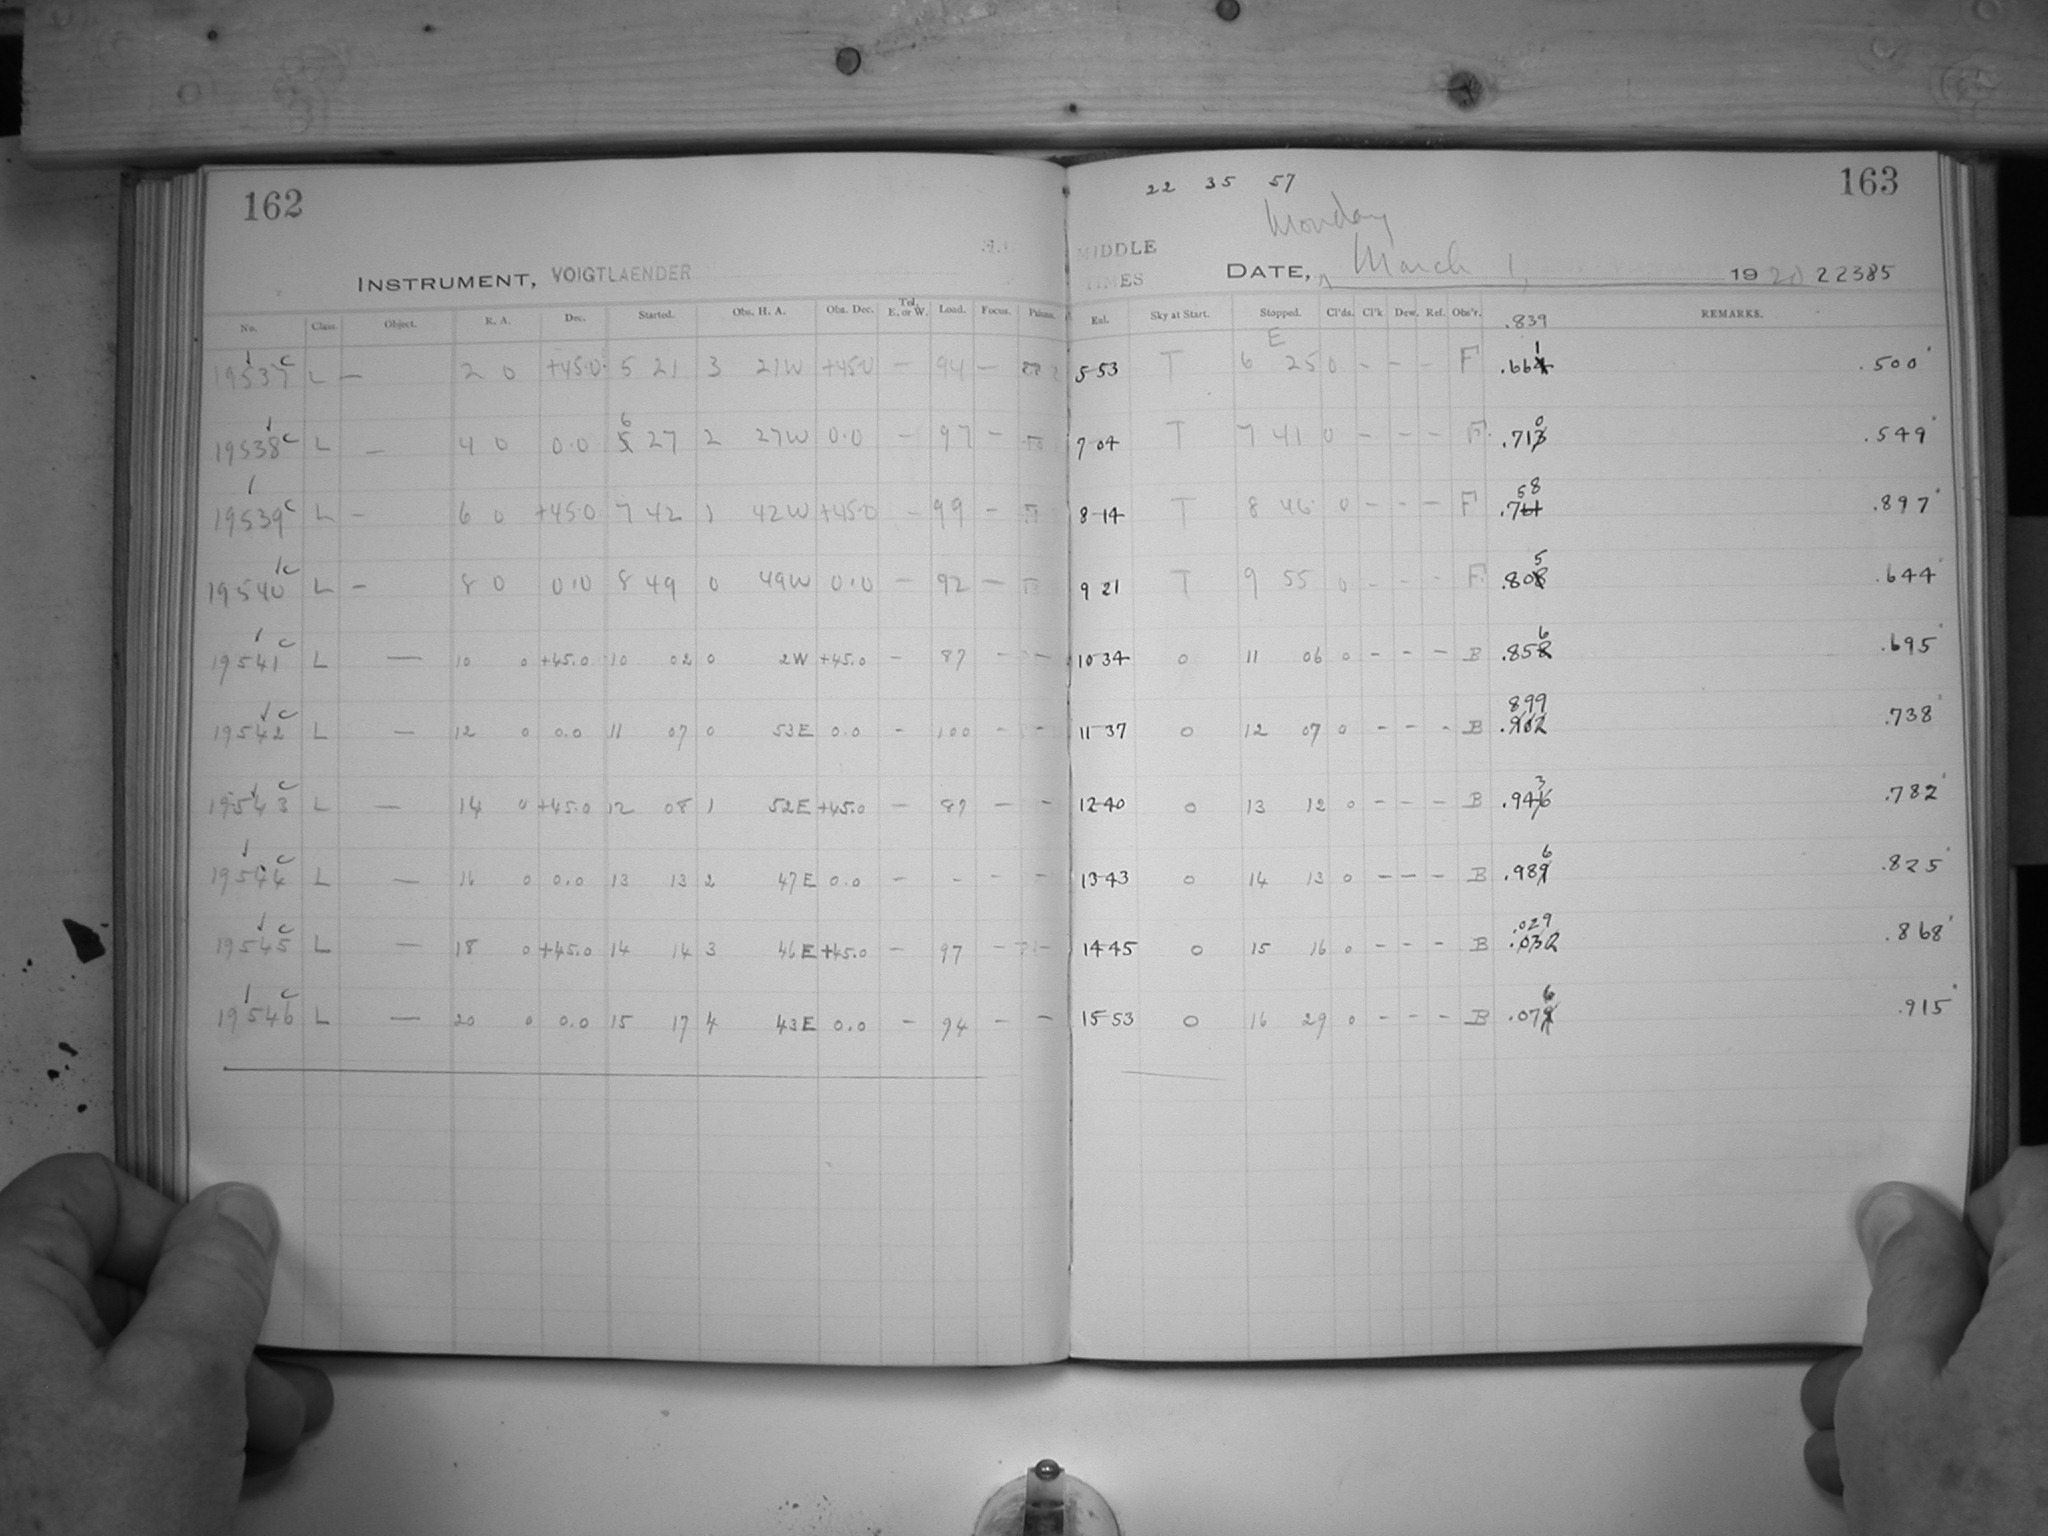 162
INSTRUMENT, VOIGTLAENDER
No. Class. Object. R. A. Dec. Started. Obs. H. A. Obs. Dec. Tel. E. or W. Load. Focus.
19537 c L — 2 0 +45.0 5 21 3 21W +45.0 — 94 —
19538 c L — 4 0 0.0 6 27 2 27W 0.0 — 97 —
19539 c L — 6 0 +45.0 7 42 1 42W +45.0 — 99 —
19540 c L — 8 0 0.0 8 49 0 49W 0.0 — 92 —
19541 c L — 10 0 +45.0 10 02 0 2W +45.0 — 87 — —
19542 c L — 12 0 0.0 11 07 0 53E 0.0 - 100 - -
19543 c L — 14 0 +45.0 12 08 1 52E +45.0 — 87 — -
19544 c L — 16 0 0.0 13 13 2 47E 0.0 — - - -
19545 c L — 18 0 +45.0 14 14 3 46E +45.0 — 97 - -
19546 c L — 20 0 0.0 15 17 4 43E 0.0 — 94 - -
22 35 57
163
Monday
MIDDLE
TIMES
DATE, March 1, 1920 22385
Sky at Start. Stopped. Cl'ds. Cl'k. Dew. Ref. Obs'r. .839 REMARKS.
E
5 53 T 6 25 0 - - - F .661 .500
7 04 T 7 41 0 - - - F. .710 .549
8 14 T 8 46 0 - - - F .758 .897
9 21 T 9 55 0 - - - F. .805 .644
10 34 0 11 06 0 - - - B .856 .695
11 37 0 12 07 0 - - - B .899 .738
12 40 0 13 12 0 - - - B .943 .782
13 43 0 14 13 0 - - - B .986 .825
14 45 0 15 16 0 - - - B .029 .868
15 53 0 16 29 0 - - - B .076 .915